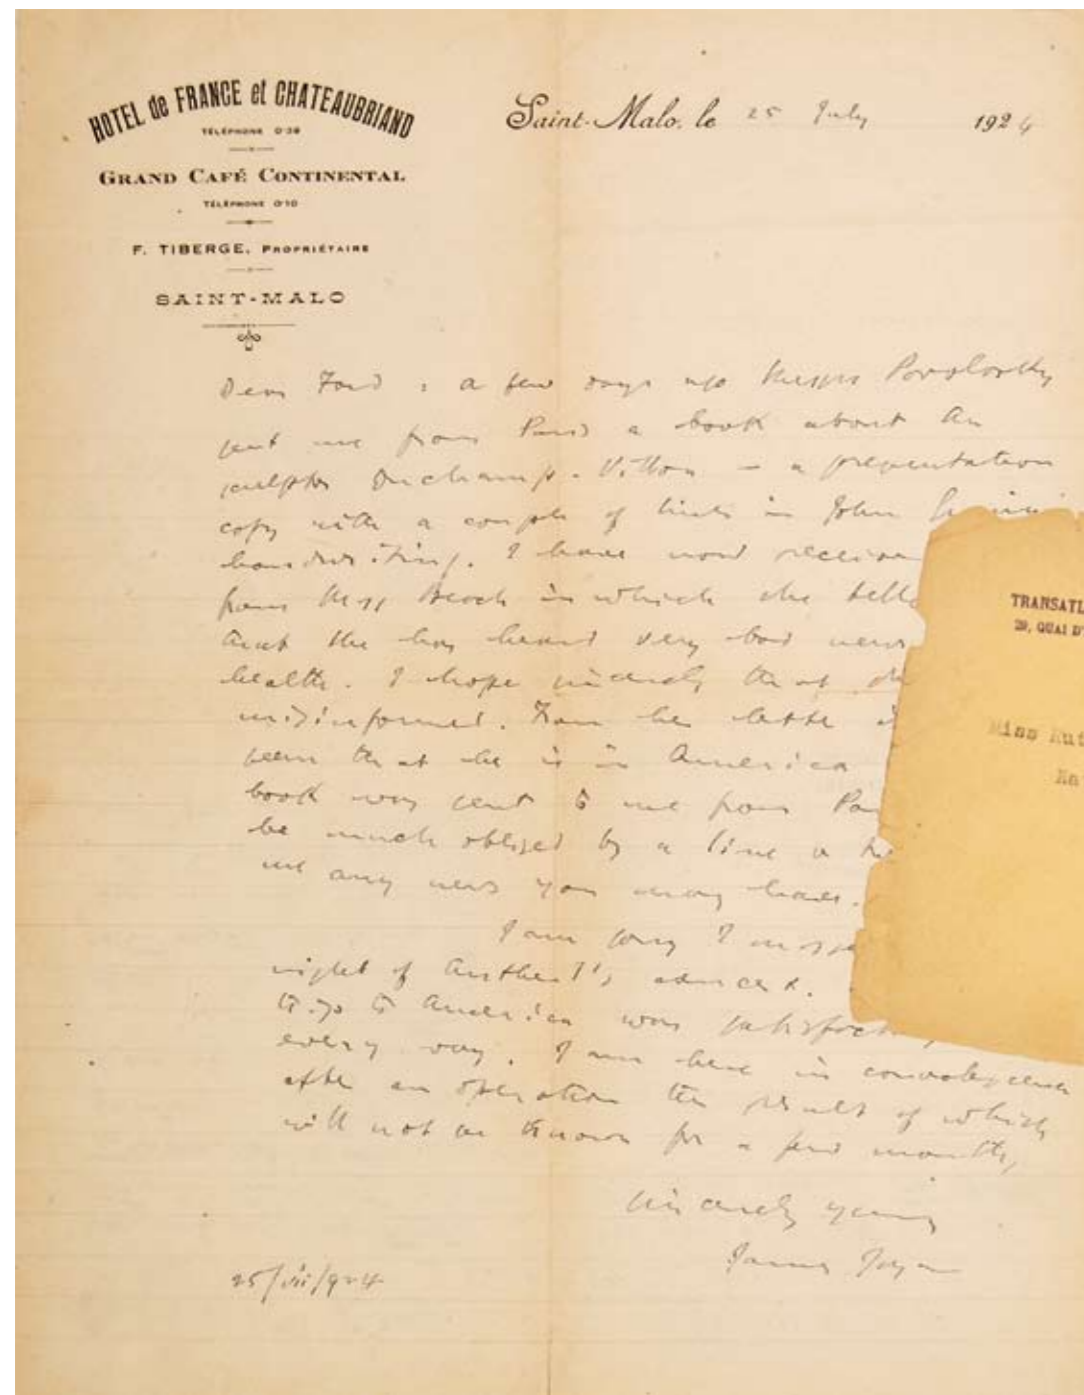 HOTEL de FRANCE et CHATEAUBRIAND
TÉLÉPHONE 0-39
GRAND CAFÉ CONTINENTAL
TÉLÉPHONE 0-10
F. TIBERGE, PROPRIÉTAIRE
SAINT-MALO
Saint-Malo, le 25 July 1924
Dear Ford : a few days ago Messrs Povolozky
sent me from Paris a book about
sculptor Duchamp-Villon - a presentation
copy with a couple of lines in John
handwriting. I have now
from Miss Beach in which she
that she has heard very bad news
health. I hope sincerely that
misinformed. From her letter
seem that he is in America
book was sent to me from
be much obliged by a line
me any news you may have.
I am sorry I
night of Antheil's concert.
trip to America was
every way. I am here in convalescence
after an operation the result of which
will not be known for a few months,
sincerely yours
James Joyce
25/vii/924
TRANSATL
29, QUAI D'
Miss Rut